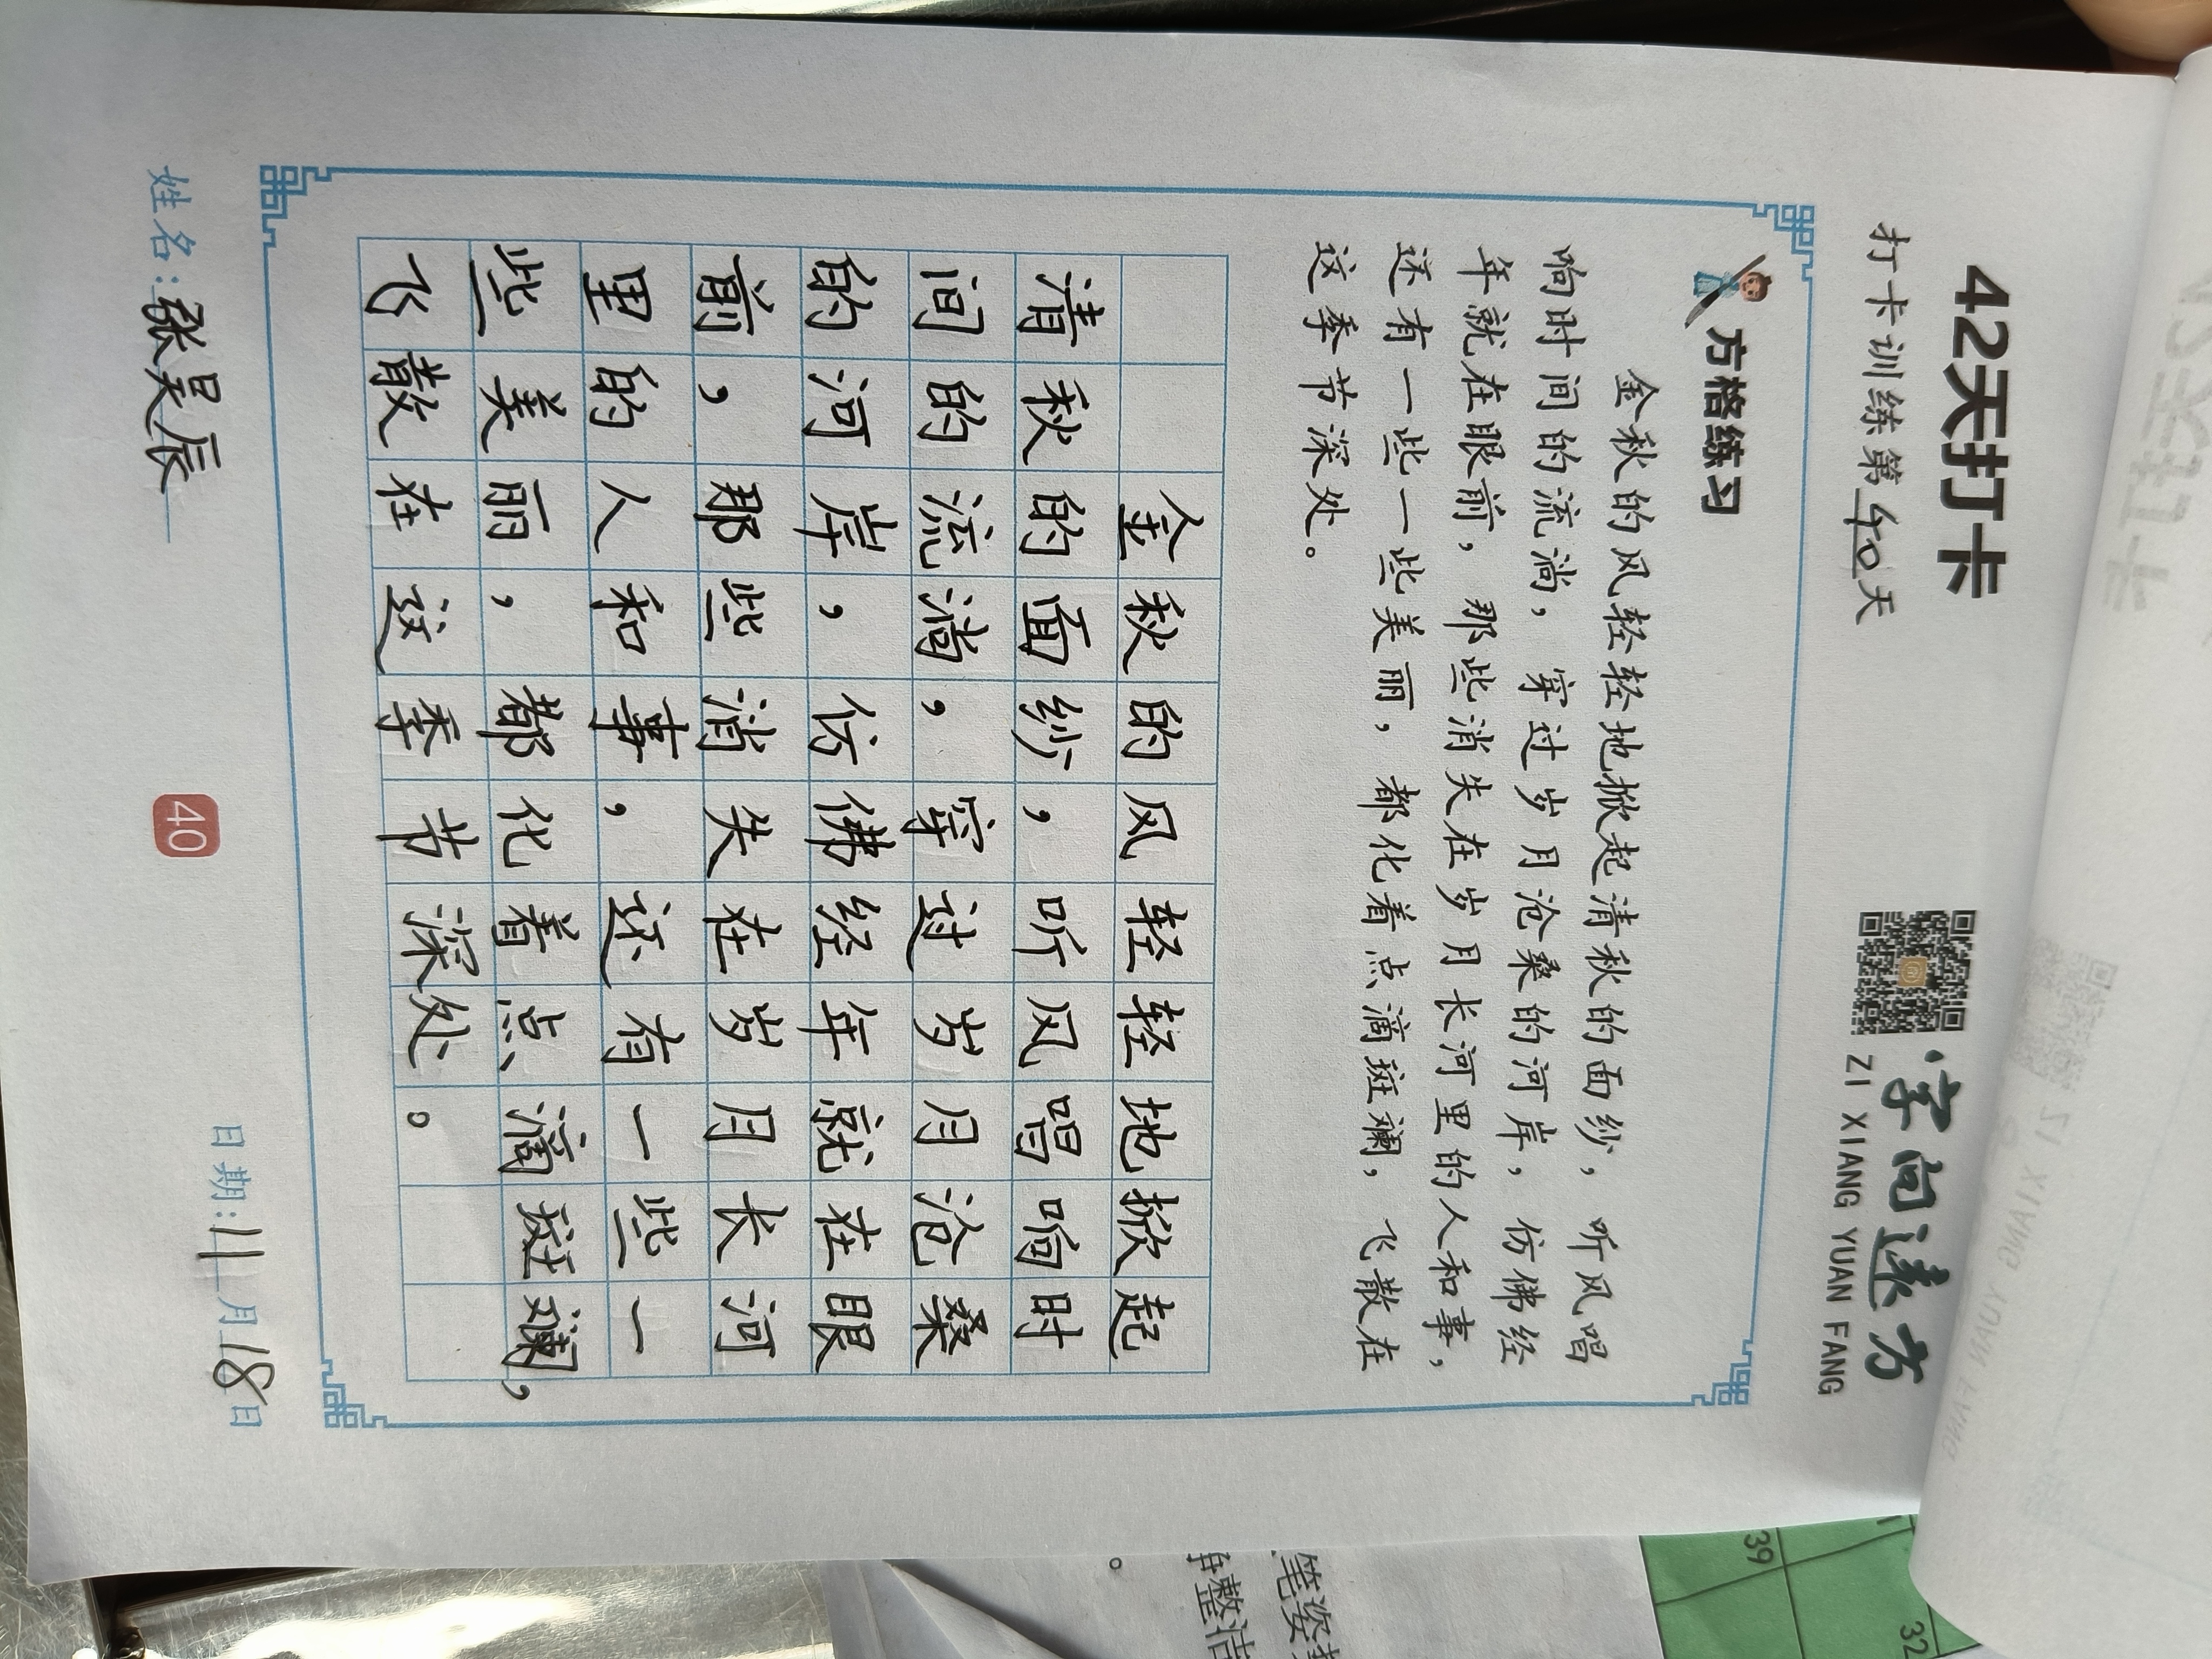 42天打卡
打卡训练第40天
字向远方
ZI XIANG YUAN FANG
方格练习
金秋的风轻轻地掀起清秋的面纱，听风唱
响时间的流淌，穿过岁月沧桑的河岸，仿佛经
年就在眼前，那些消失在岁月长河里的人和事，
还有一些一些美丽，都化着点滴斑斓，飞散在
这季节深处。
金秋的风轻轻地掀起
清秋的面纱，听风唱响时
间的流淌，穿过岁月沧桑
的河岸，仿佛经年就在眼
前，那些消失在岁月长河
里的人和事，还有一些一
些美丽，都化着点滴斑斓，
飞散在这季节深处。
姓名:张昊辰
40
日期:11月18日
39
32
笔姿
整洁